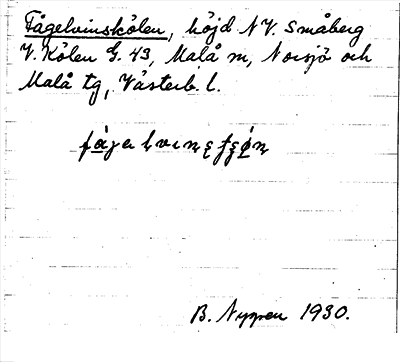 Fågelvinskölen, höjd NV. Småberg
V. Kölen G. 43, Malå sn, Norsjö och
Malå tg, Västerb. l.
B. Nygren 1930.